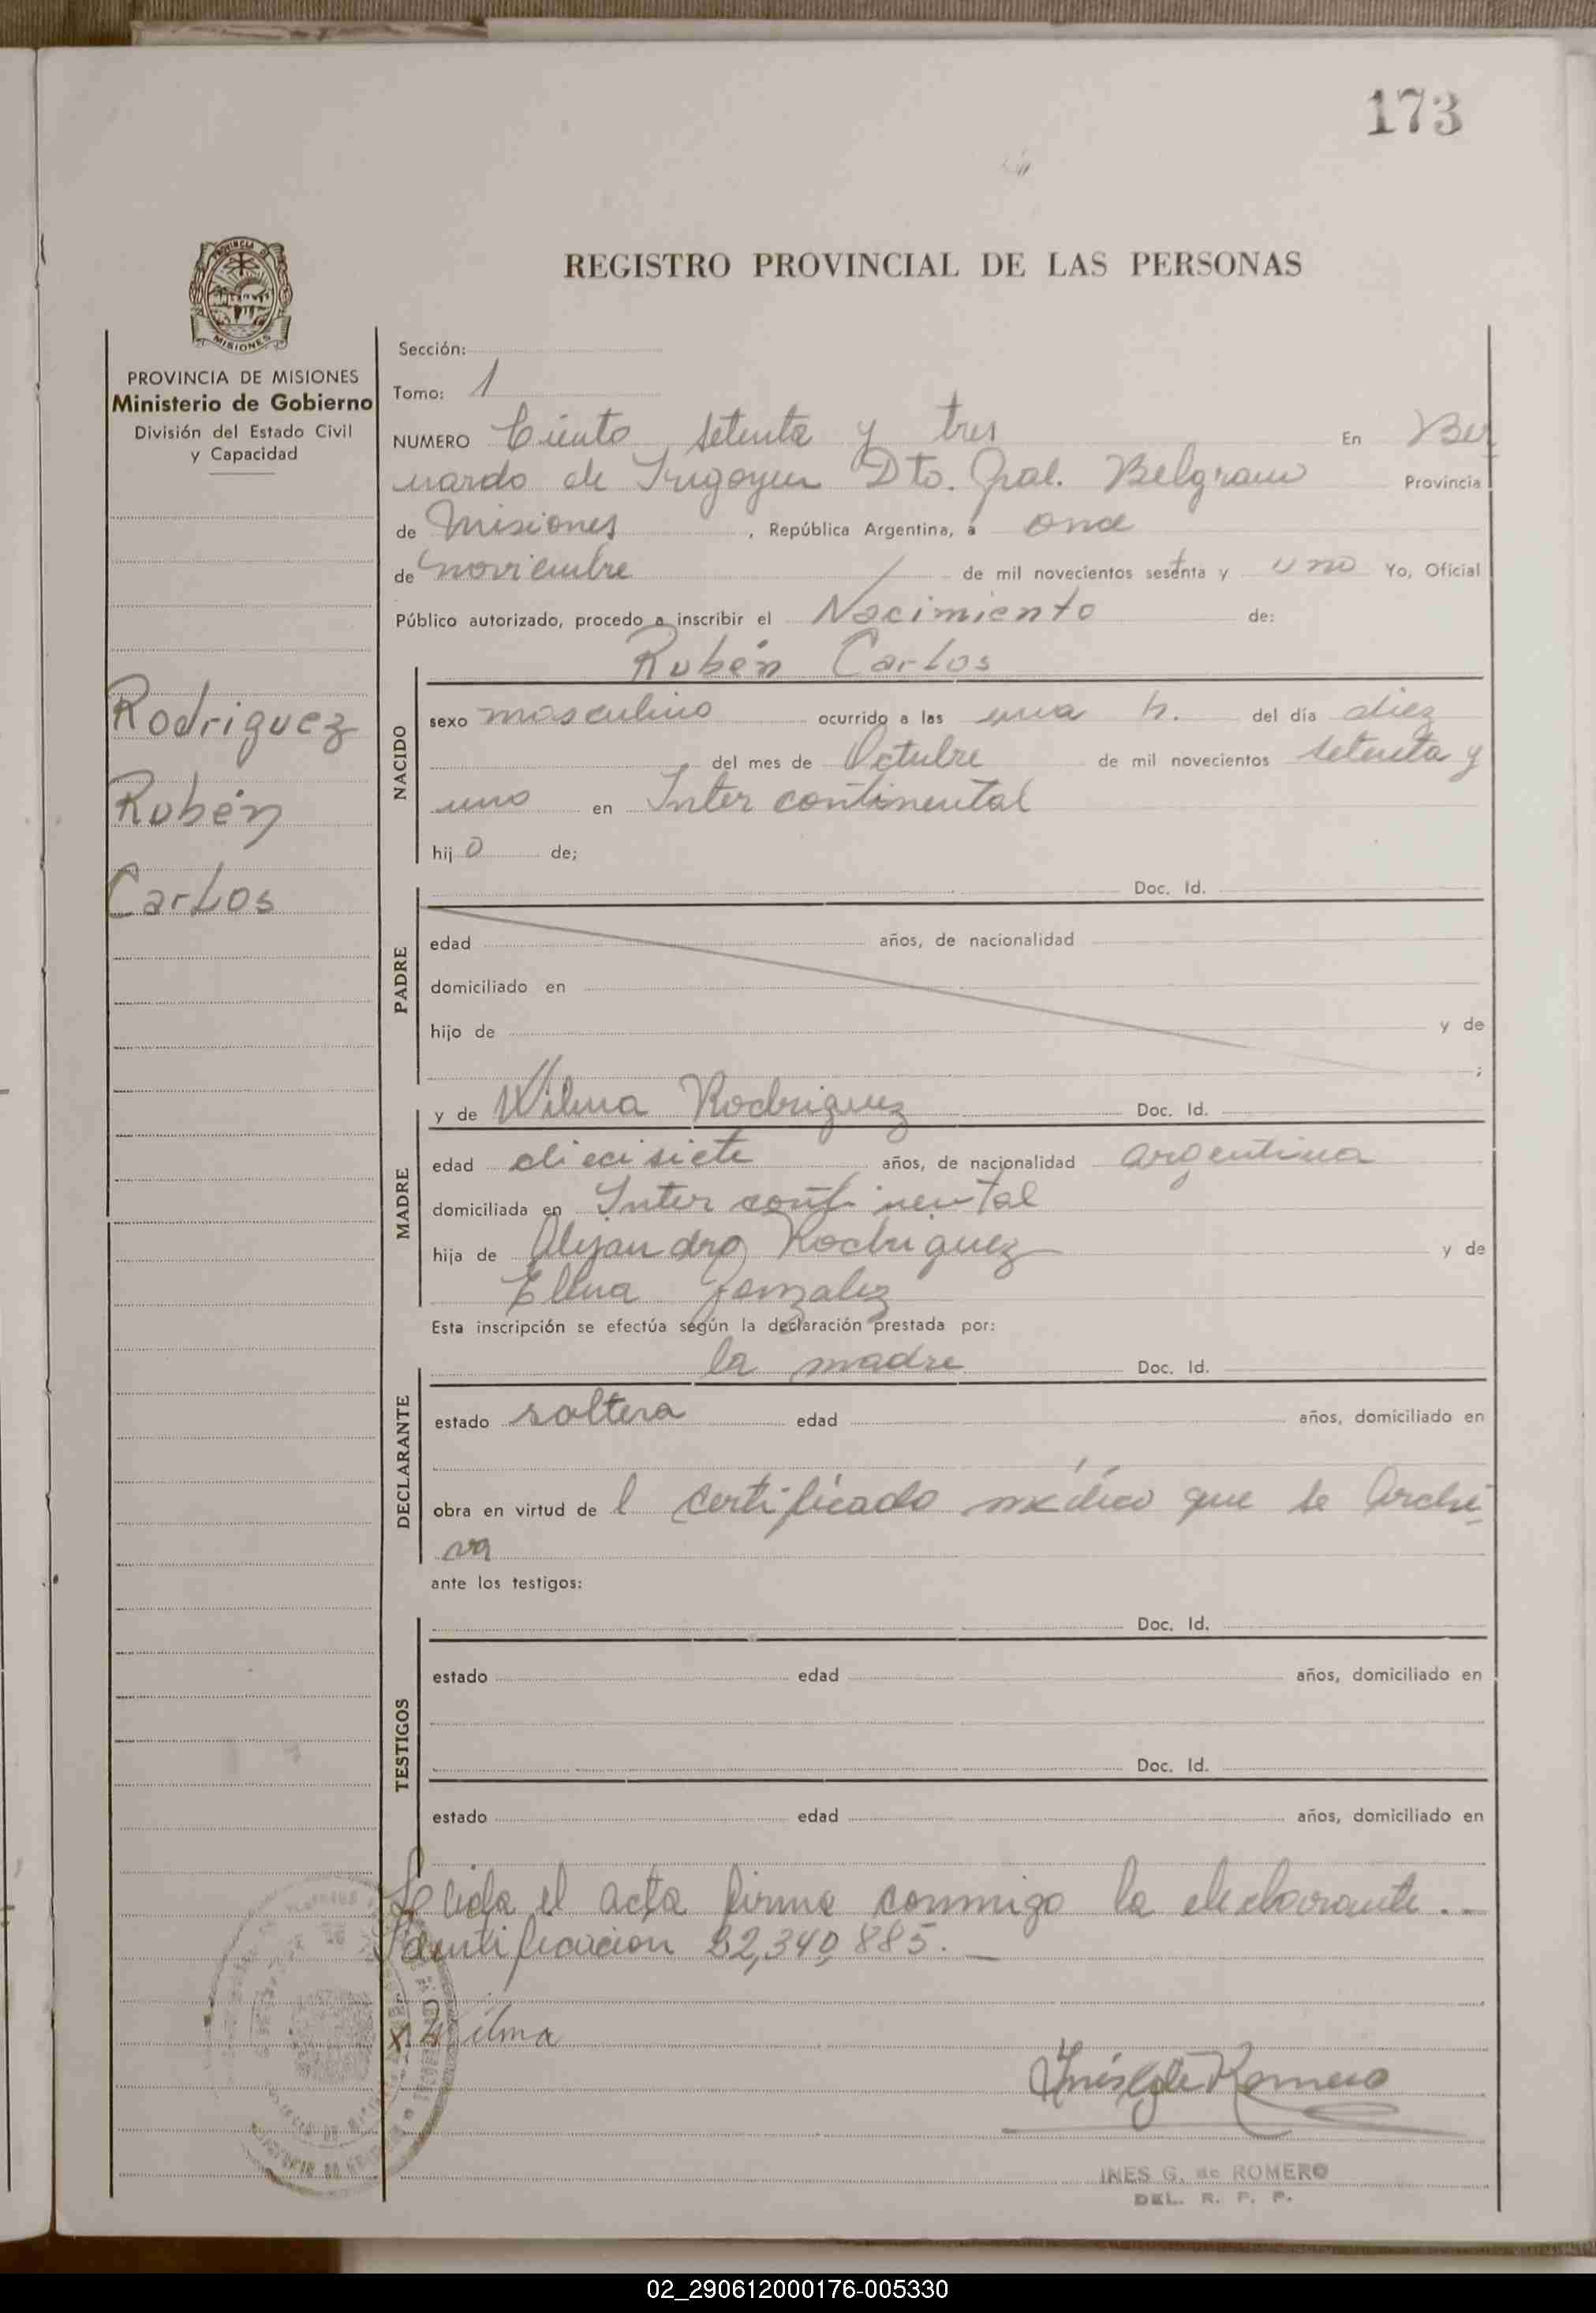 173
REGISTRO PROVINCIAL DE LAS PERSONAS
PROVINCIA DE MISIONES
Ministerio de Gobierno
División del Estado Civil
y Capacidad
Rodriguez
Rubén
Carlos
Sección:
Tomo: 1
NUMERO Ciento setenta y tres En Ber
nardo de Irigoyen Dto. Gral. Belgrano Provincia
de Misiones, República Argentina, a once
de noviembre de mil novecientos sesenta y uno Yo, Oficial
Público autorizado, procedo a inscribir el Nacimiento de:
Rubén Carlos
NACIDO
sexo masculino ocurrido a las una h. del día diez
del mes de Octubre de mil novecientos setenta y
uno en Inter continental
hijo de;
PADRE
Doc. Id.
edad años, de nacionalidad
domiciliado en
hijo de y de
;
MADRE
y de Wilma Rodriguez Doc. Id.
edad diecisiete años, de nacionalidad argentina
domiciliada en Inter continental
hija de Alejandro Rodriguez y de
Elena Gonzalez
Esta inscripción se efectúa según la declaración prestada por:
DECLARANTE
la madre Doc. Id.
estado soltera edad años, domiciliado en
obra en virtud de l certificado médico que se archi
va
ante los testigos:
TESTIGOS
Doc. Id.
estado edad años, domiciliado en
Doc. Id.
estado edad años, domiciliado en
Leida el acta firma conmigo la declarante..
Identificacion 22,340,885.
x Wilma
Inés G de Romero
INES G. de ROMERO
DEL. R. P. P.
MISIONES
02_290612000176-005330